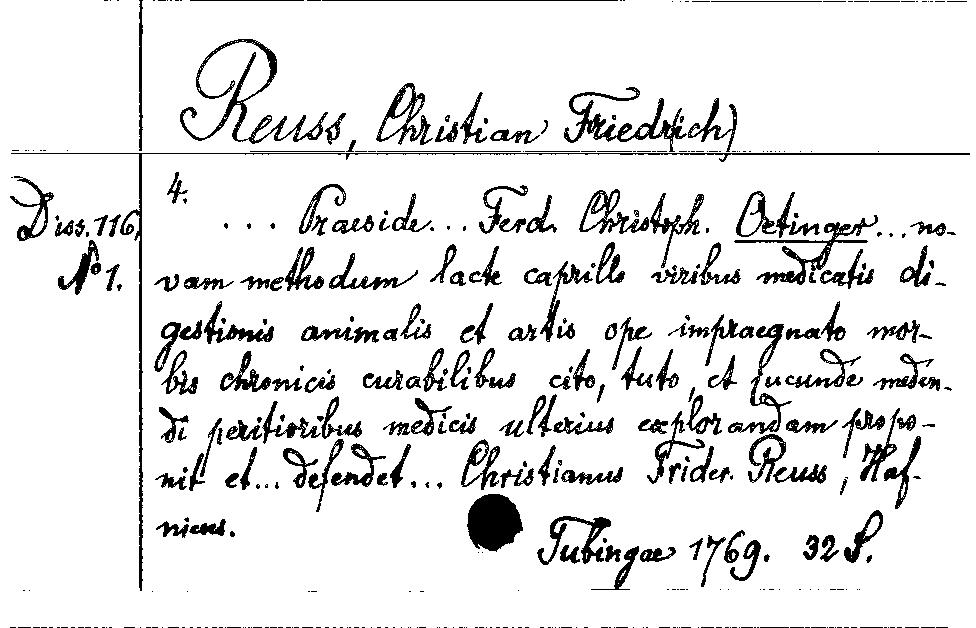 Reuss, Christian Friedr(ich)
Diss. 116,
No 1.
4.
... Praeside... Ferd. Christoph. Oetinger... no-
vam methodum lacte caprillo viribus medicatis di-
gestionis animalis et artis ope impraegnato mor-
bis chronicis curabilibus cito, tuto, et jucunde meden-
di peritioribus medicis ulterius explorandam propo-
nit et... defendet... Christianus Frider. Reuss, Haf-
niens.
Tubingae 1769. 32 S.